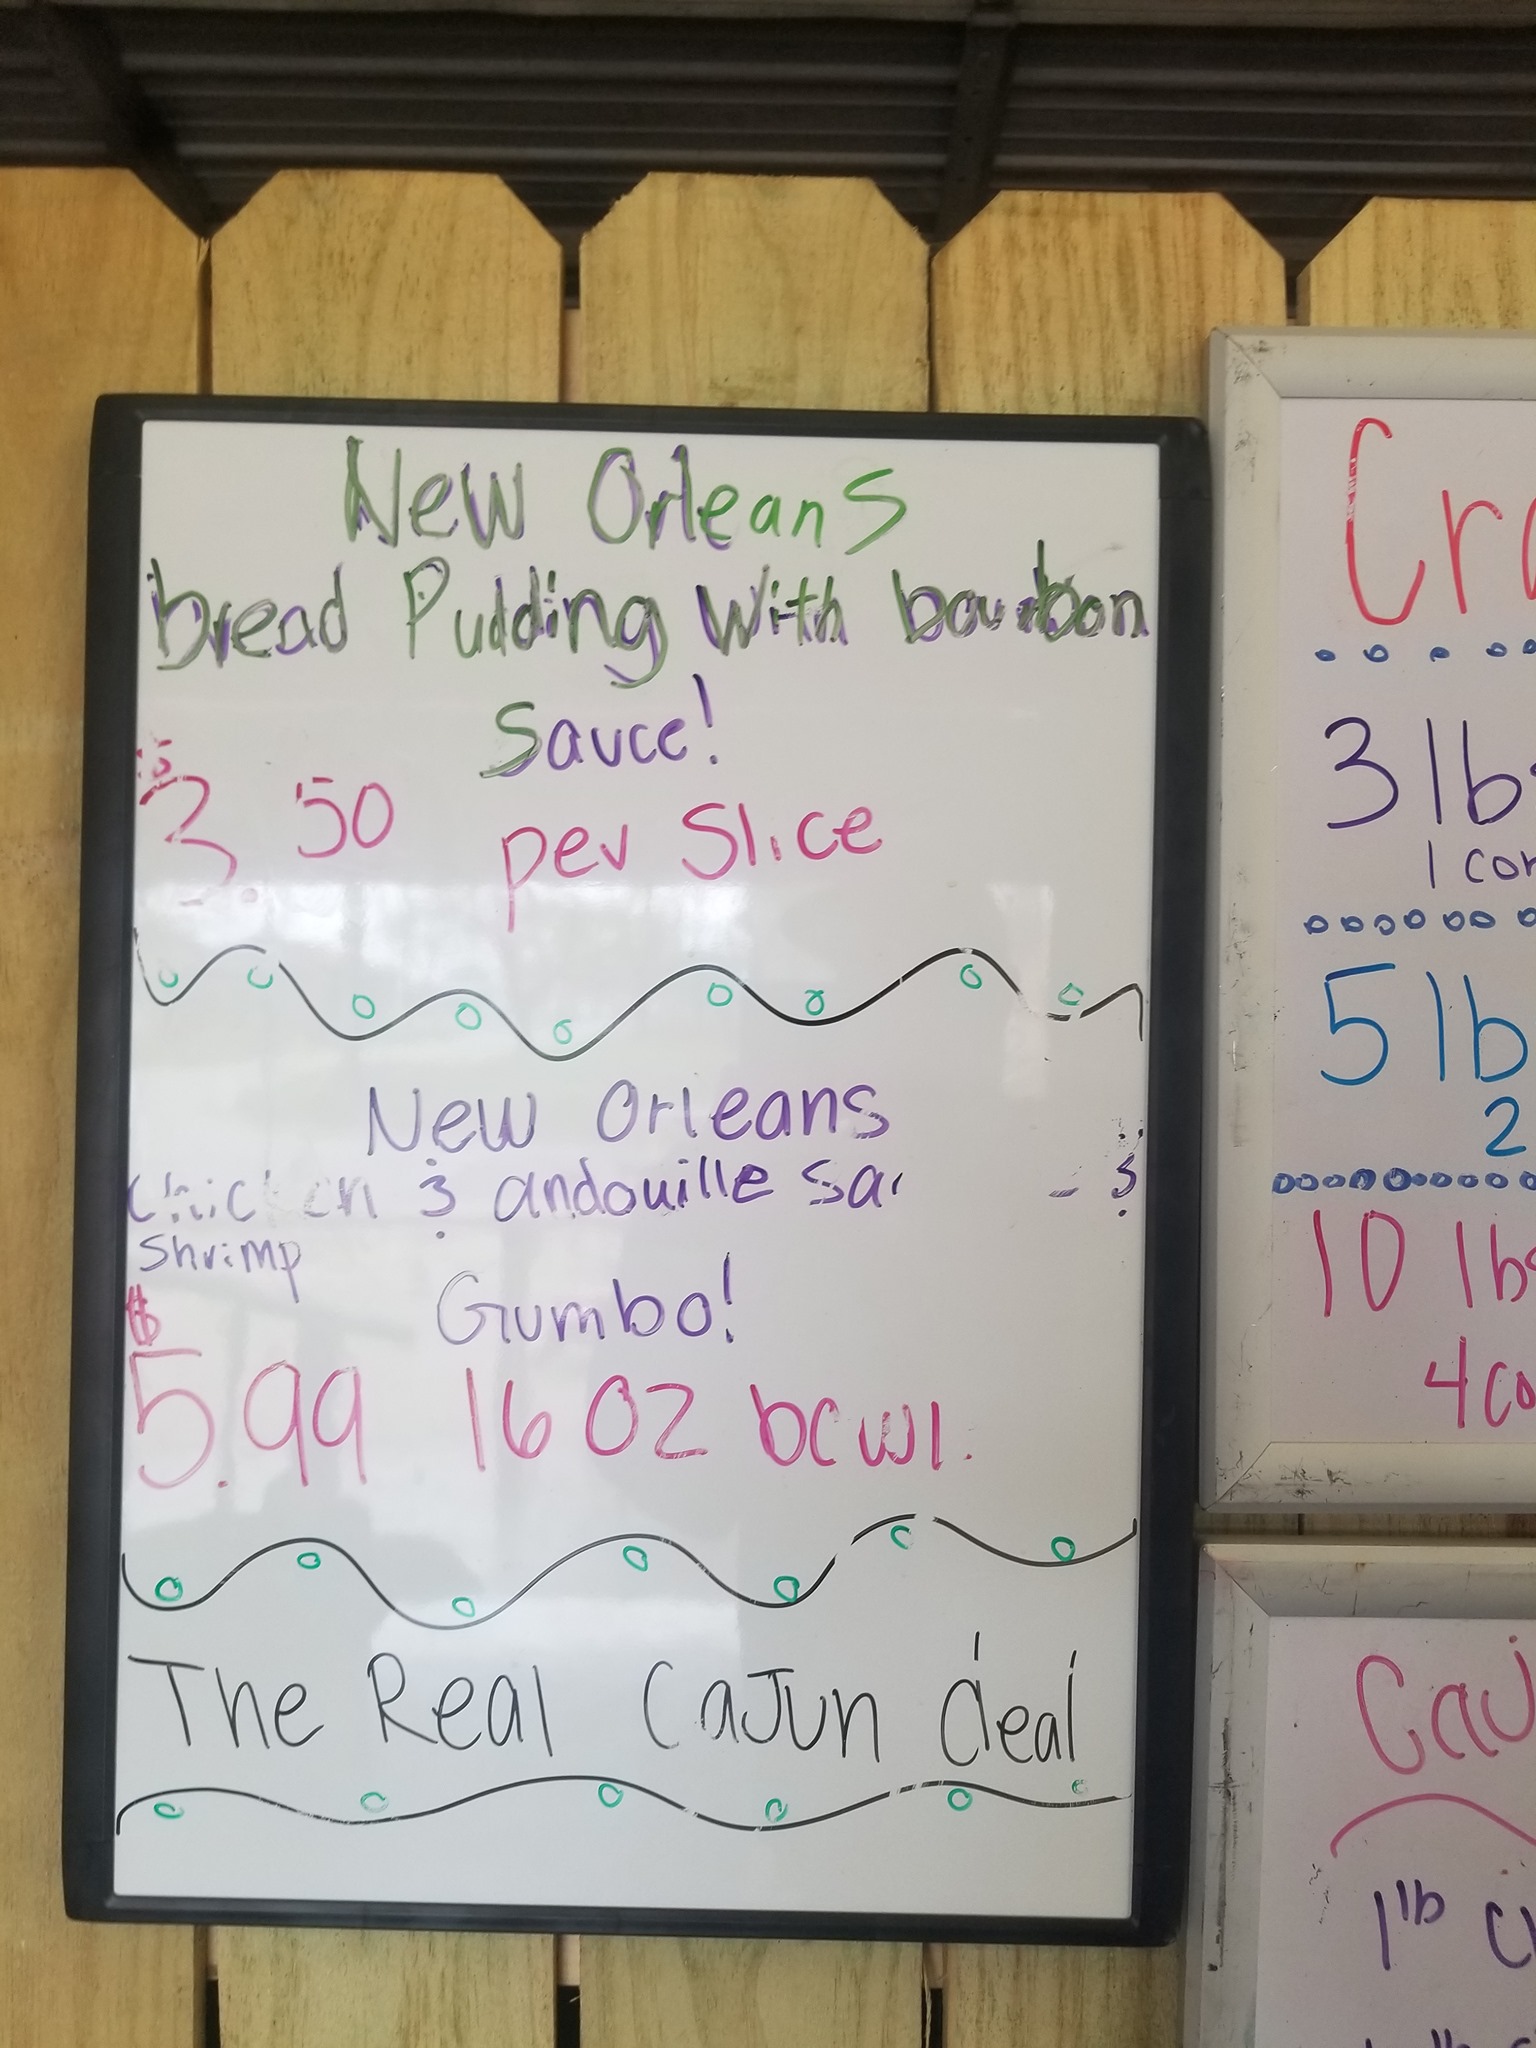 New Orleans
bread Pudding With bourbon
Sauce!
$3.50 per Slice
New Orleans
Chicken & andouille sa &
Shrimp
Gumbo!
$5.99 16 OZ bowl.
The Real Cajun deal
Cr
3 lbs
1 cor
5 lb
2
10 lbs
4 co
Caj
1 lb